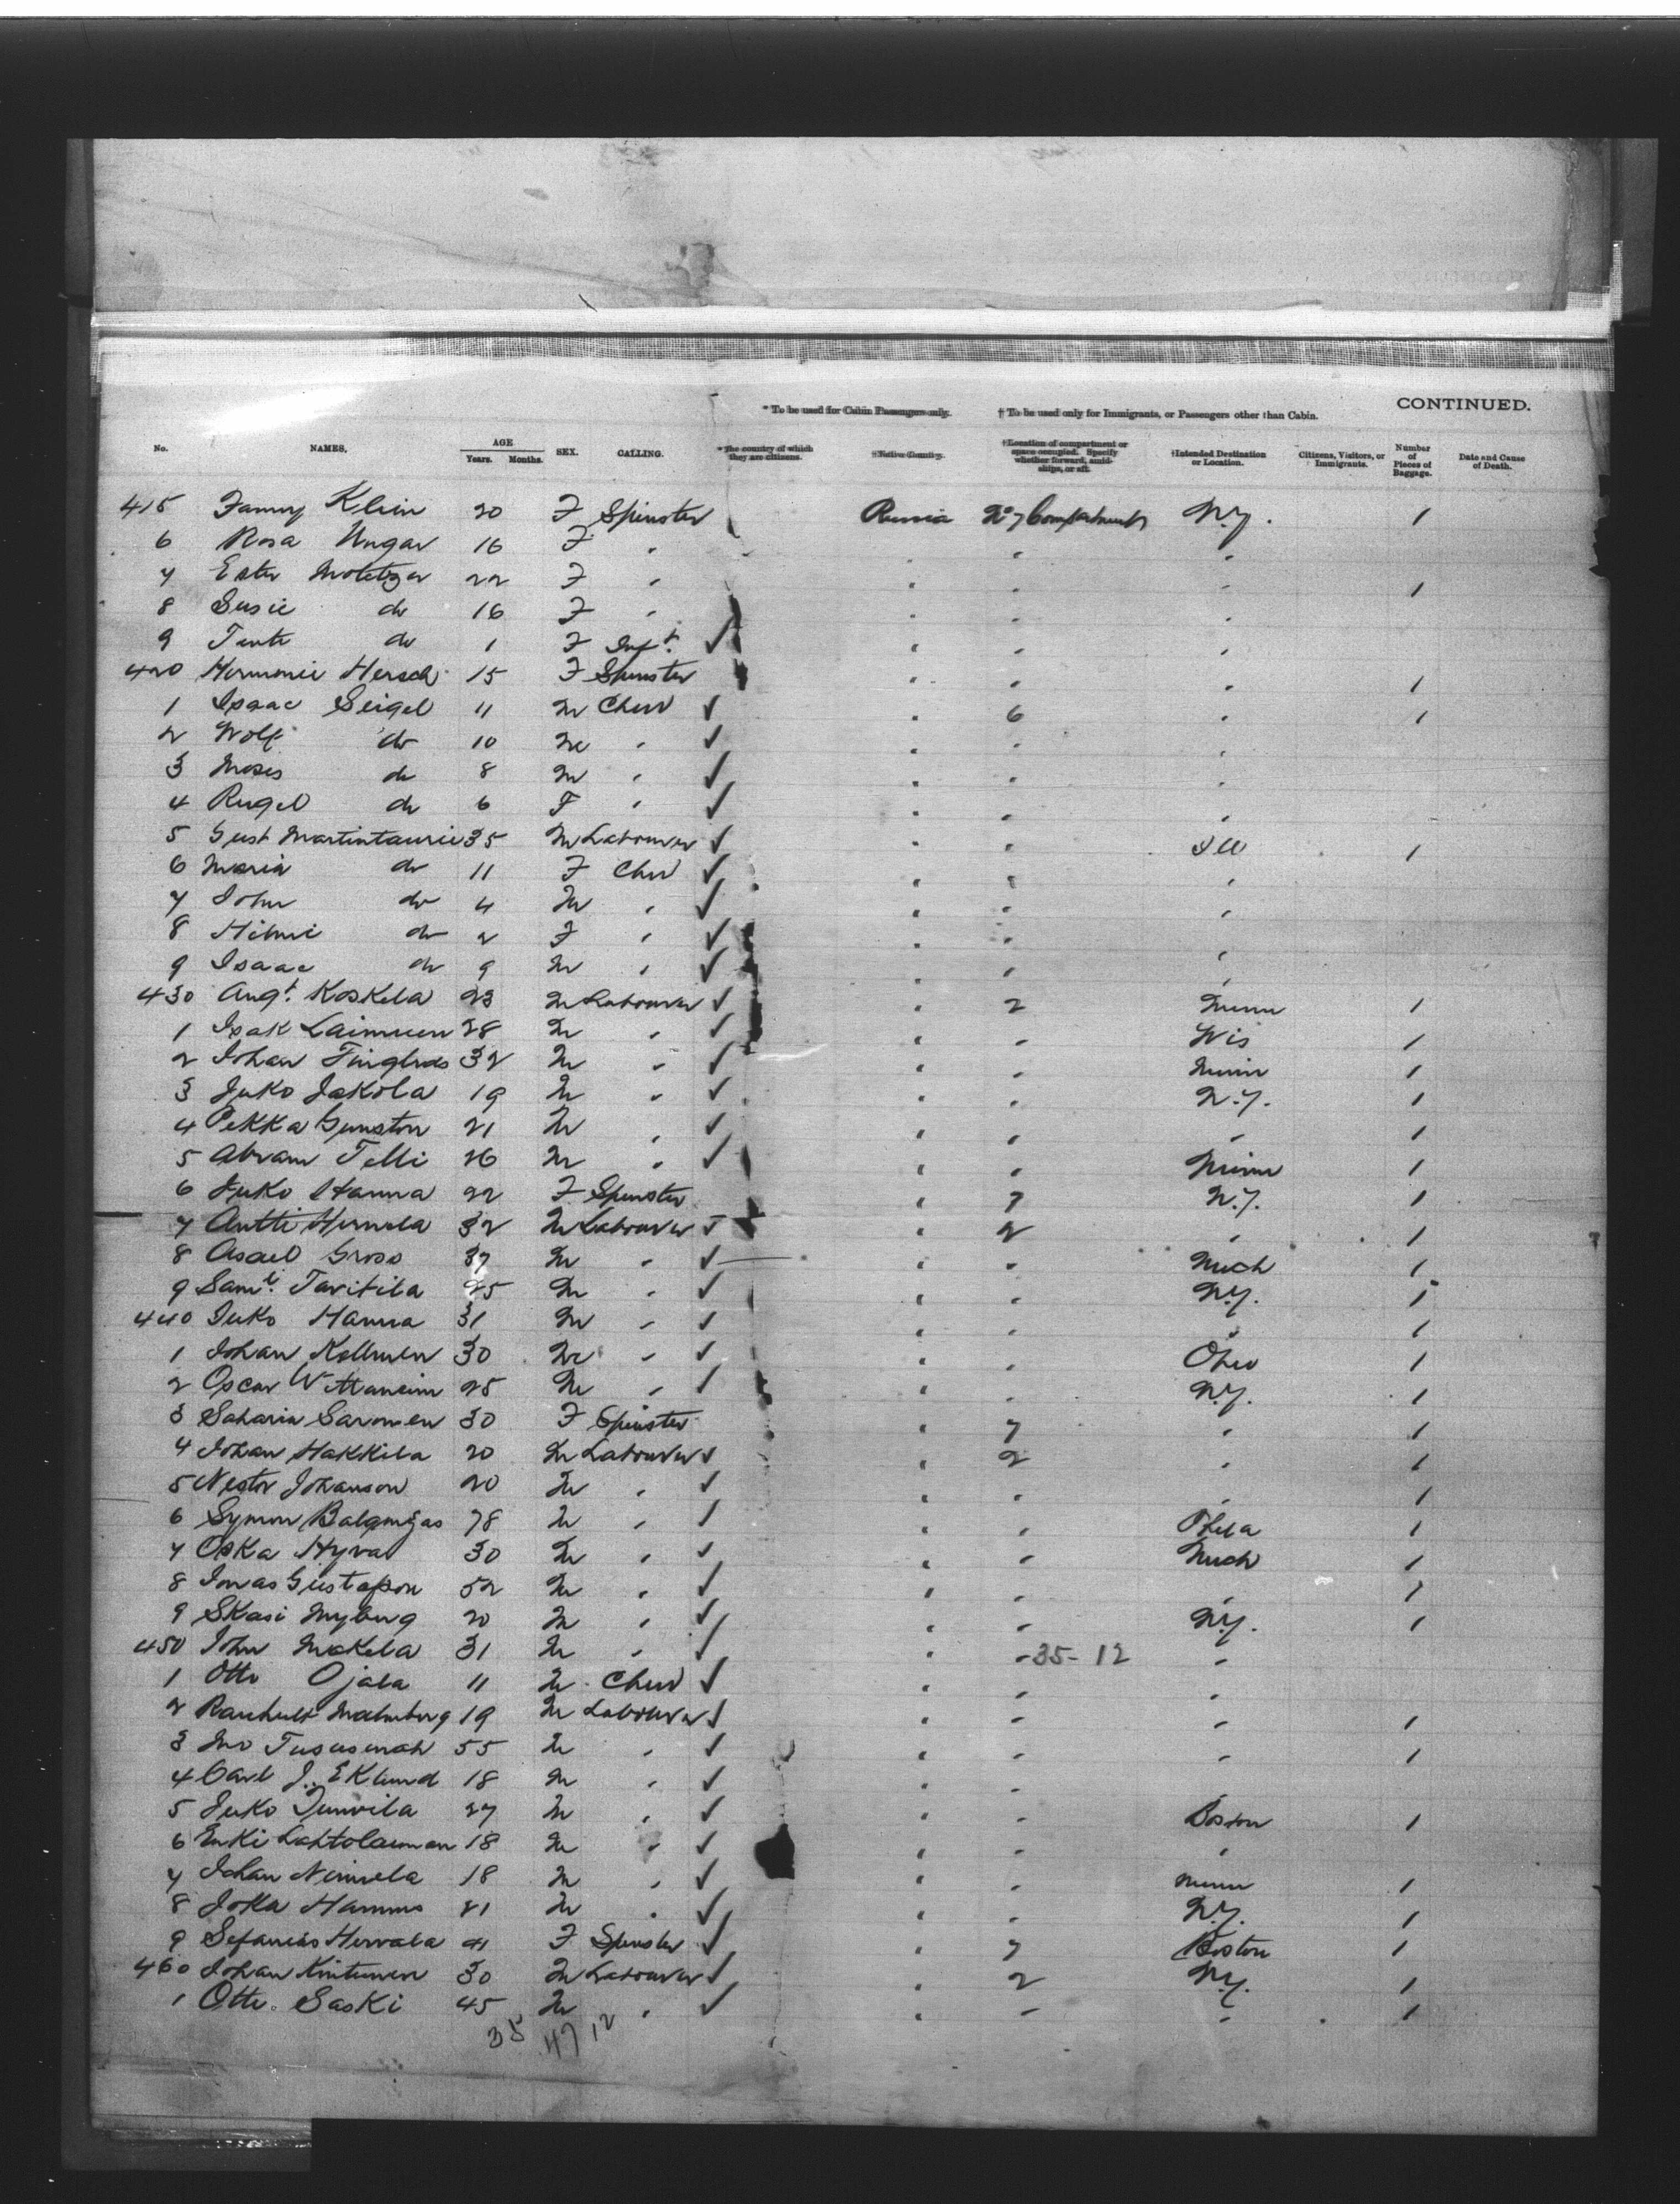 CONTINUED.
* To be used for Cabin Passengers only. † To be used only for Immigrants, or Passengers other than Cabin.
No. NAMES. AGE Years. Months. SEX. CALLING. * The country of which they are citizens. †Native Country. †Location of compartment or space occupied. Specify whether forward, amidships, or aft. †Intended Destination or Location. Citizens, Visitors, or Immigrants. Number of Pieces of Baggage. Date and Cause of Death.
415 Fanny Klein 20 F Spinster Russia No 7 Compartment N.Y. 1
6 Rosa Ungar 16 F " " " "
7 Ester 22 F " " " " 1
8 Susie do 16 F " " " "
9 do 1 F Inft. ✓ " " "
420 Hersch 15 F Spinster " " " 1
1 Isaac Seigel 11 M Child ✓ " 6 " 1
2 Wolf do 10 M " ✓ " " "
3 Moses do 8 M " ✓ " " "
4 Rugel do 6 F " ✓ " " "
5 Gust 35 M Labourer ✓ " " Ill 1
6 Maria do 11 F Child ✓ " " "
7 John do 4 M " ✓ " " "
8 do 2 F " ✓ " " "
9 Isaac do 9 M " ✓ " " "
430 Augt. Koskela 23 M Labourer ✓ " 2 Minn 1
1 Isak 28 M " ✓ " " Wis 1
2 Johan 32 M " ✓ " " Minn 1
3 Juko Jakola 19 M " ✓ " " N.Y. 1
4 Pekka 21 M " ✓ " " " 1
5 Abram Telli 26 M " ✓ " " Minn 1
6 Juko Hanna 22 F Spinster " 7 N.Y. 1
7 Antti 32 M Labourer ✓ " 2 " 1
8 37 M " ✓ " " Mich 1
9 Saml. Tavitila 25 M " ✓ " " N.Y. 1
440 Juko Hanna 31 M " ✓ " " " 1
1 Johan 30 M " ✓ " " Ohio 1
2 Oscar 25 M " ✓ " " N.Y. 1
3 30 F Spinster " 7 " 1
4 Johan Hakkila 20 M Labourer ✓ " 2 " 1
5 Nestor Johanson 20 M " ✓ " " " 1
6 Symon 78 M " ✓ " " Phila 1
7 Oska Hyva 30 M " ✓ " " Mich 1
8 Jonas Gustafson 52 M " ✓ " " " 1
9 Nyberg 20 M " ✓ " " N.Y. 1
450 John Makela 31 M " ✓ " " 35-12 "
1 Otto Ojala 11 M Child ✓ " " "
2 Malmberg 19 M Labourer ✓ " " " 1
3 55 M " ✓ " " " 1
4 Carl J. Eklund 18 M " ✓ " "
5 Juko 27 M " ✓ " " Boston 1
6 18 M " ✓ " " "
7 Johan Nimela 18 M " ✓ " " Minn 1
8 21 M " ✓ " " N.Y. 1
9 F Spinster ✓ " 7 Boston 1
460 Johan 30 M Labourer ✓ " 2 N.Y. 1
1 Otto Saski 45 M " ✓ " " " 1
35 47 12